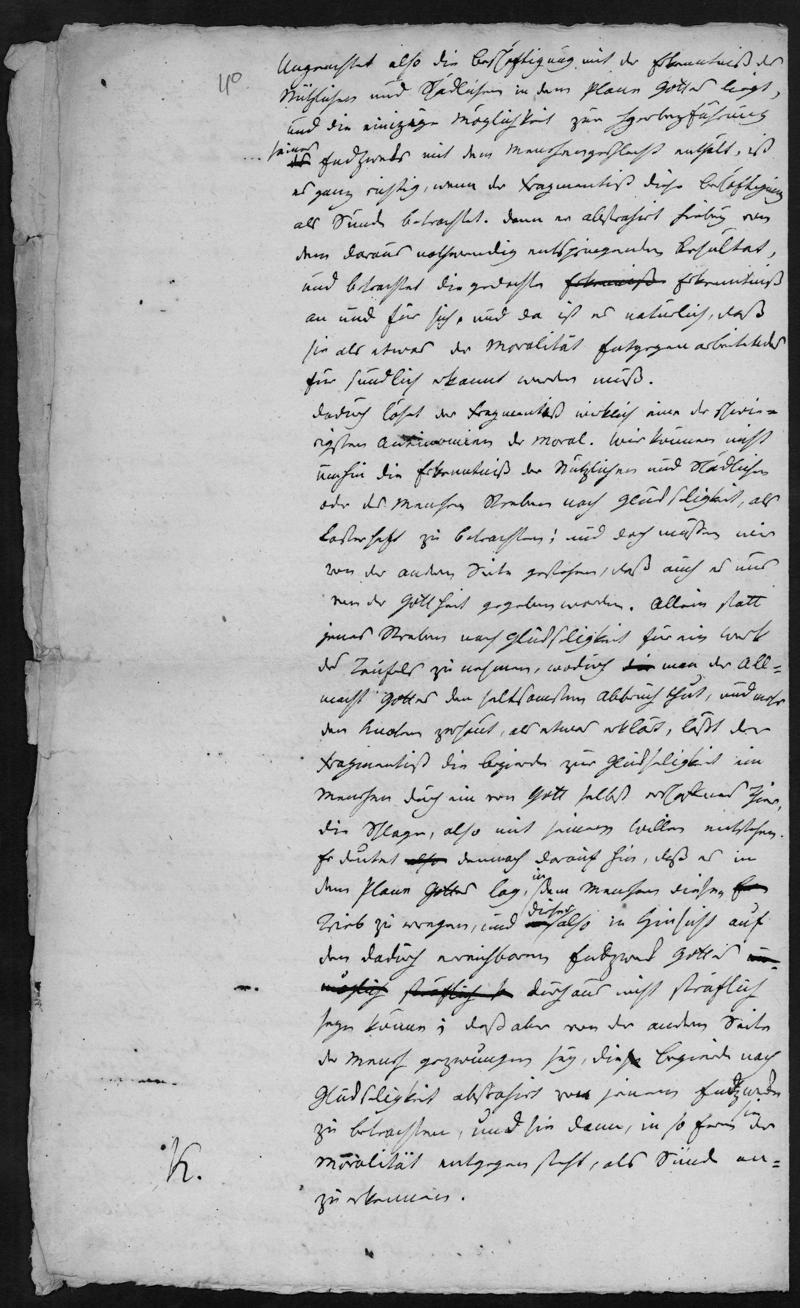 40
Ungeachtet also die Beschäftigung mit der Erkenntniß des
Nützlichen und Schädlichen in dem Plane Gottes liegt,
und die einzige Möglichkeit zur Herbeyführung
seines Endzwecks mit dem Menschengeschlecht enthält, ist
es ganz richtig, wenn der Fragmentist diese Beschäftigung
als Sünde betrachtet. Denn er abstrahirt hiebey von
dem daraus nothwendig entspringenden Resultat,
und betrachtet die gedachte Erkenntniß
an und für sich, und da ist es natürlich, daß
sie als etwas der Moralität Entgegenarbeitendes
für sündlich erkannt werden muß.
Dadurch löset der Fragmentist wirklich eine der schwie-
rigsten Antinomien der Moral. Wir können nicht
umhin die Erkenntniß des Nützlichen und Schädlichen
oder des Menschen Streben nach Glückseligkeit, als
lasterhaft zu betrachten; und doch müssen wir
von der andern Seite gestehen, daß auch es uns
von der Gottheit gegeben worden. Allein statt
jenes Streben nach Glückseligkeit für ein Werk
des Teufels zu nehmen, wodurch man der All-
macht Gottes den seltsamsten Abbruch thut, und mehr
den Knoten zerhaut, als etwas erklärt, läßt der
Fragmentist die Begierde zur Glückseligkeit im
Menschen durch ein von Gott selbst erschaffnes Thier,
die Schlange, also mit seinem Willen entstehen.
Er deutet demnach darauf hin, daß es in
dem Plane Gottes lag, in dem Menschen diesen
Trieb zu erregen, und dieser also in Hinsicht auf
den dadurch erreichbaren Endzweck Gottes
durchaus nicht sträflich
seyn könne; daß aber von der andern Seite
der Mensch gezwungen sey, diese Begierde nach
Glückseligkeit abstrahirt von jenem Endzwecke
zu betrachten, und sie dann, in so fern sie der
Moralität entgegen steht, als Sünde an-
zuerkennen.
K.